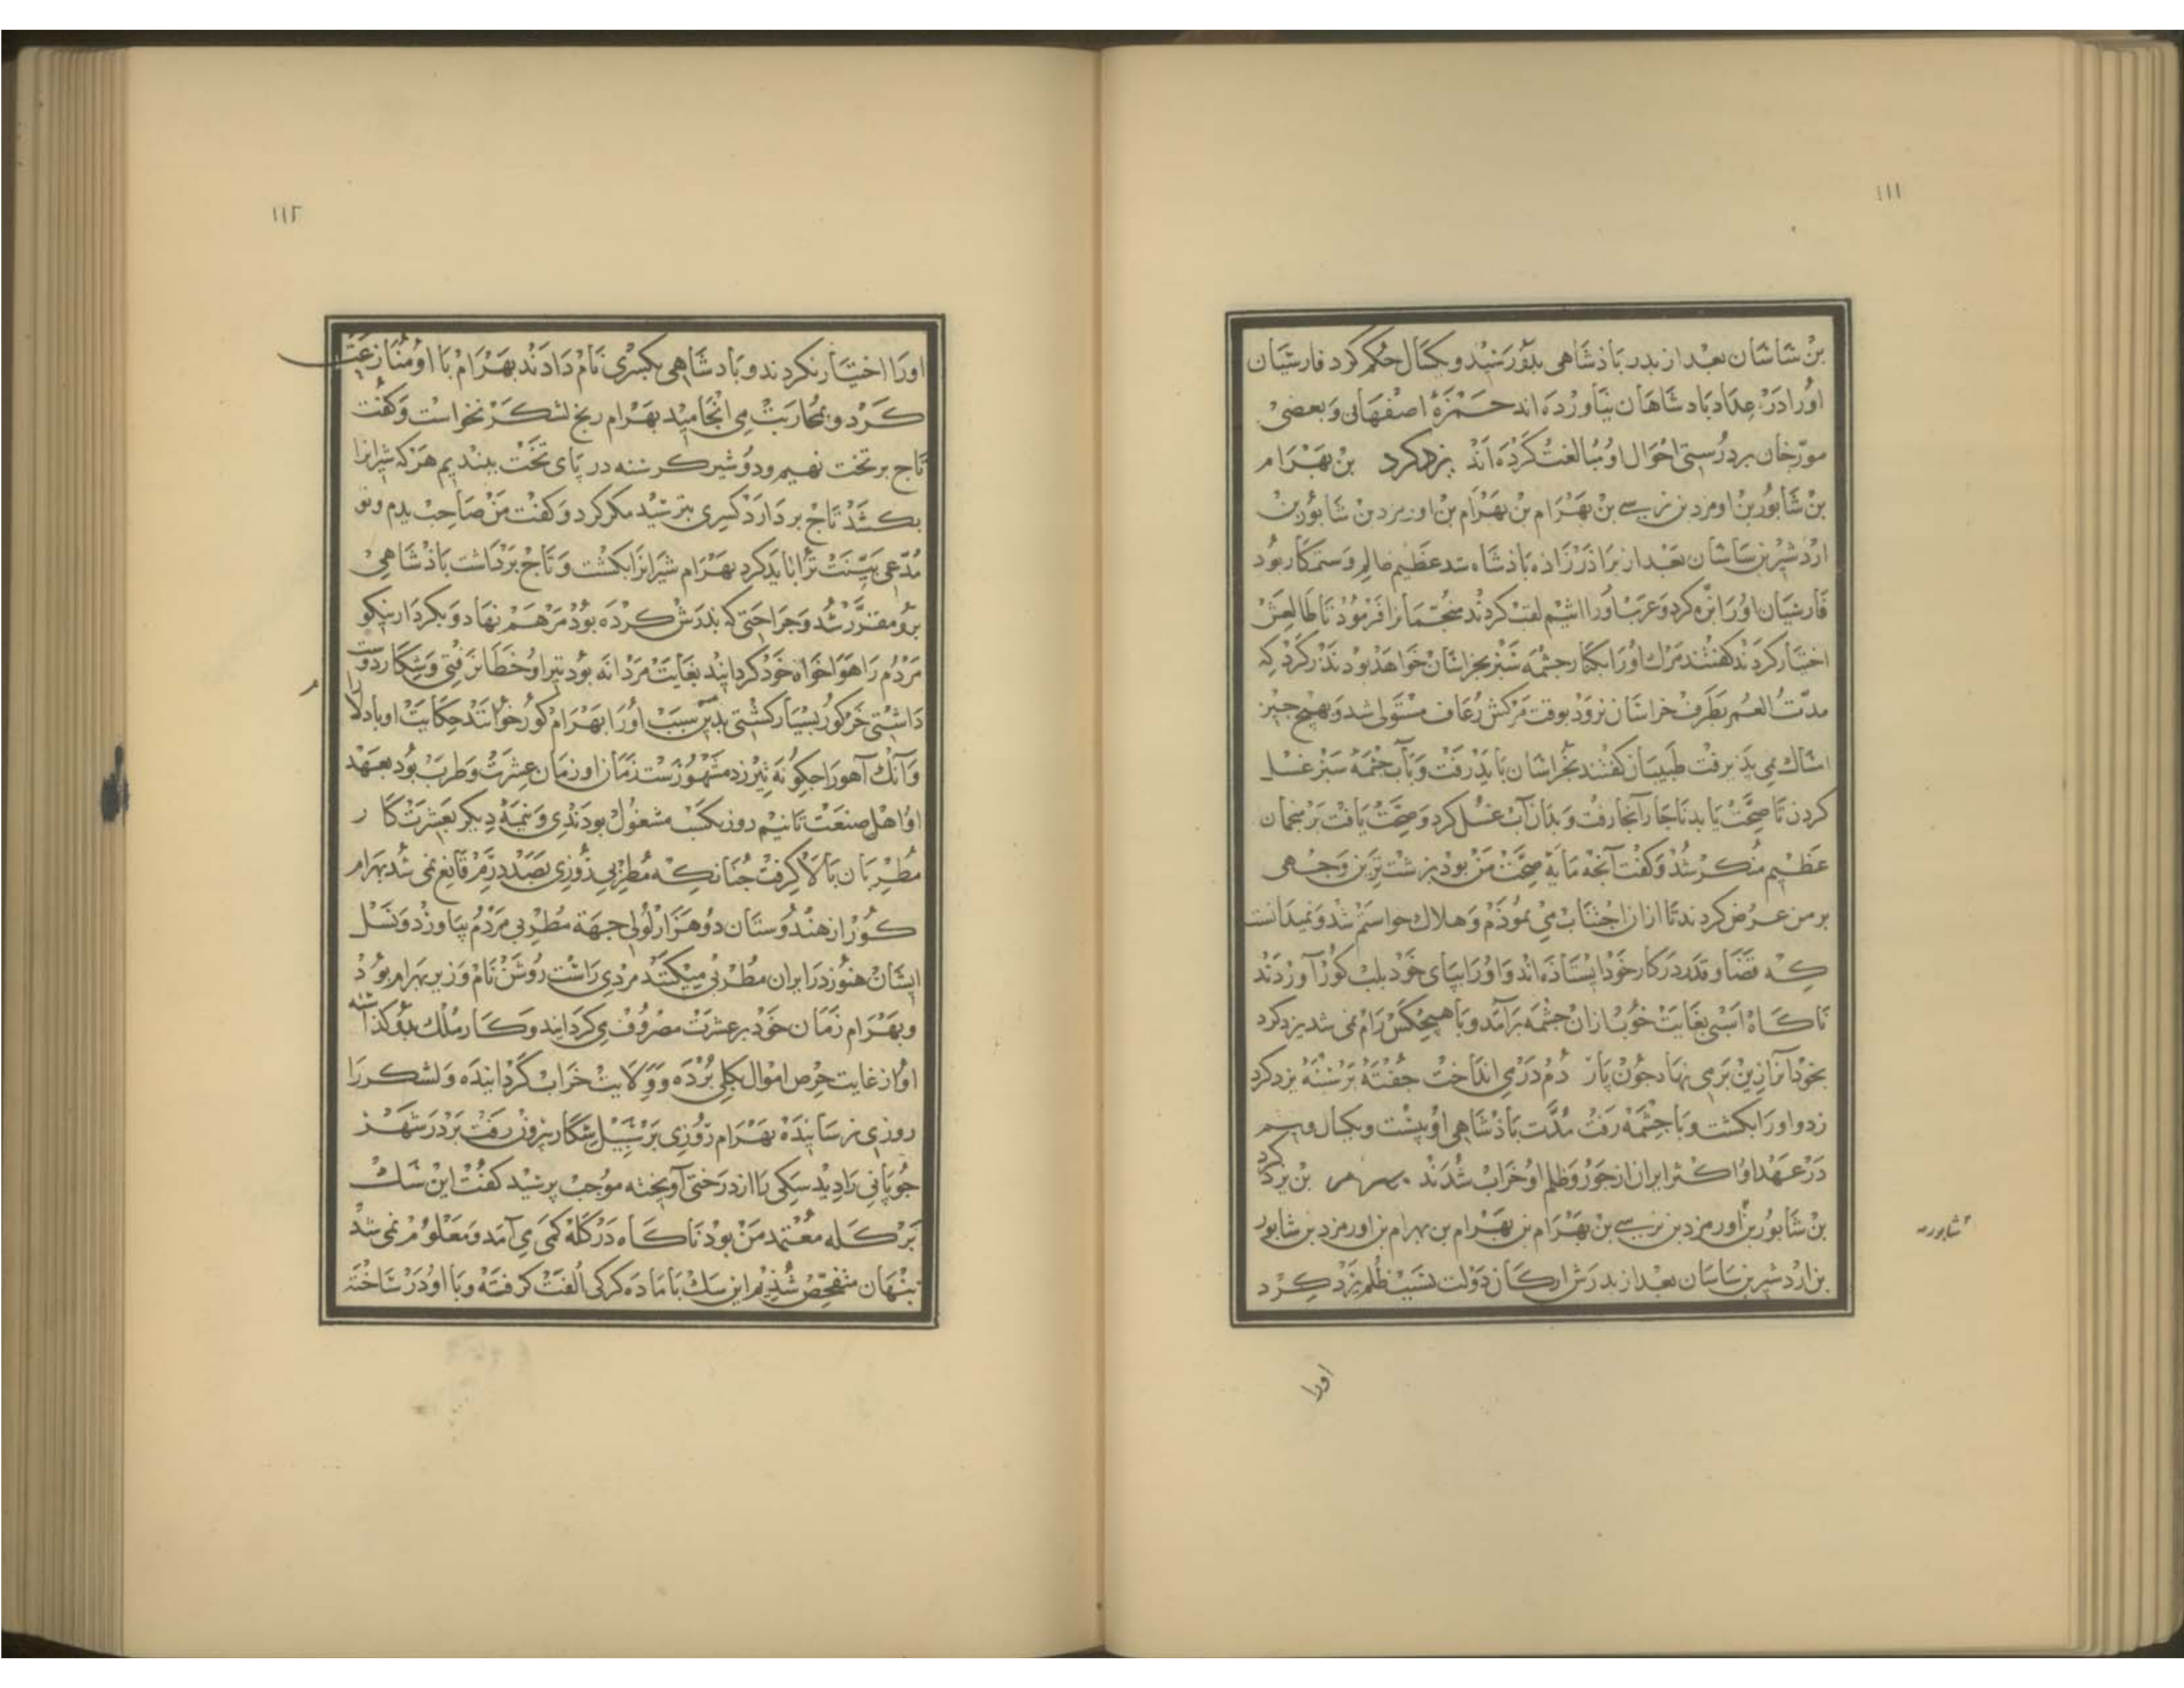 ١١١
بن ساسان بعد از پدر پاذشاهی بدو رسید و یکسال حکم کرد فارسیان
او را در عداد پادشاهان نیاورده اند حمزهٔ اصفهانی و بعضی
مورّخان بر درستی احوال او مبالغت کرده اند یزدکرد بن بهرام
بن شابور بن اومزد بن نرسے بن بهرام بن بهرام بن اورمزد بن شابور بن
اردشیر بن ساسان بعد از براذرزاده باذشاه شد عظیم ظالم و ستمکار بود
فارسیان او را بزه کرد و عرب او را اثیم لقب کردند منجمانرا فرمود تا طالعش
اختیار کردند کفتند مرك او را بکنار جشمه سبز بخراسان خواهد بود نذر کرد که
مدّت العمر بطرف خراسان نرود بوقت مرکش رعاف مستولی شد و بهیج جیز
امساك نمی پذیرفت طبیبان کفتند بخراسان باید رفت و بآب جشمه سبز غسل
کردن تا صحّت یابد ناجار آنجا رفت و بدان آب غسل کرد و صحّت یافت بر منجمان
عظیم منکر شد و کفت آنجه مایهٔ صحّت من بود بزشت ترین وجهی
بر من عرض کردند تا از ان اجتناب می نموذم و هلاك خواستم شد و نمیدانست
که قضا و قدر در کار خود ایستاذه اند و او را بپای خود بلب کور آوردند
ناکاه اسبی بغایت خوب از ان جشمه برآمد و با هیجکس رام نمی شد یزدکرد
بخود آنرا زین بر می نهاد جون پار دم در می انداخت جفتهٔ بر سینه یزدکرد
زد و او را بکشت و با جشمه رفت مدّت باذشاهی او بیست و یکسال و نیم
در عهد او اکثر ایران از جور و ظلم او خراب شدند بهرام بن یزدکرد
بن شابور بن اورمزد بن نرسے بن بهرام بن بهرام بن بهرام بن اورمزد بن شابور
بن اردشیر بن ساسان بعد از پدرش ارکان دولت بسبب ظلم یزدکرد
شابور
اورا
١١٢
او را اختیار نکردند و بادشاهی بکسری نام دادند بهرام با او منازعت
کرد و بمحاربت می انجامید بهرام رنج لشکر نخواست و کفت
تاج بر تخت نهیم و دو شیر کرسنه در پای تخت ببندیم هر که شیرانرا
بکشد تاج بردارد کسری بترسید مکر کرد و کفت من صاحب یدم و تو
مدّعی بیّنت ترا باید کرد بهرام شیرانرا بکشت و تاج برداشت باذشاهی
برو مقرّر شد و جراحتی که پدرش کرده بود مرهم نهاد و بکردار نیکو
مردم را هواخواه خود کردانید بغایت مردانه بود تیر او خطا نرفتی و شکار دوست
داشتی خرکور بسیار کشتی بدین سبب او را بهرام کور خوانند حکایت او با دلارا
و آنك آهو را جکونه تیر زد مشهورست زمان او زمان عشرت و طرب بود بعهد
او اهل صنعت تا نیم روز بکسب مشغول بودندی و نیمهٔ دیکر بعشرت کا ر
مطربان بالا کرفت جنانکه مطربی روزی بصد درم قانع نمی شد بهرام
کور از هندوستان دو هزار لولی جهة مطربی مردم بیاورد و نسل
ایشان هنوز در ایران مطربی میکنند مردی راست روشن نام وزیر بهرام بود
و بهرام زمان خود بر عشرت مصروف می کردانید و کار ملك بدو کذاشته
او از غایت حرص اموال بکلی برده و ولایت خراب کردانیده و لشکر را
روزی نرسانیده بهرام روزی بر سبیل شکار بیرون رفت بر در شهر
جوپانی را دید سکی را از درختی آویخته موجب پرسید کفت این سك
بر کله معتمد من بود ناکاه در کله کمی می آمد و معلوم نمی شد
پنهان متفحّص شدم این سك با ماده کرکی الفت کرفته و با او در ساخته